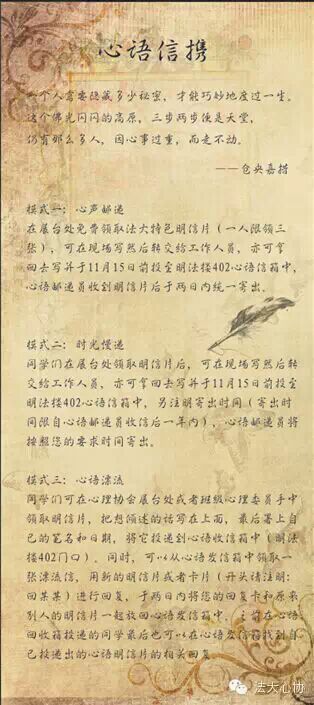 心语信携
一个人需要隐藏多少秘密，才能巧妙地度过一生。
这个佛光闪闪的高原，三步两步便是天堂，
仍有那么多人，因心事过重，而走不动。
——仓央嘉措
模式一：心声邮递
在展台处免费领取法大特色明信片（一人限领三
张），可在现场写然后转交给工作人员，亦可拿
回去写并于11月15日前投至明法楼402心语信箱中，
心语邮递员收到明信片后于两日内统一寄出。
模式二：时光慢递
同学们在展台处领取明信片后，可在现场写然后转
交给工作人员，亦可拿回去写并于11月15日前投至
明法楼402心语信箱中，另注明寄出时间（寄出时
间限自心语邮递员收信后一年内），心语邮递员将
按照您的要求时间寄出。
模式三：心语漂流
同学们可在心理协会展台处或者班级心理委员手中
领取明信片，把想倾述的话写在上面，最后署上自
己的笔名和日期，将它投递到心语收信箱中（明法
楼402门口）。同时，可以从心语发信箱中领取一
张漂流信，用新的明信片或者卡片（开头请注明：
回某某）进行回复，于两日内将您的回复卡和原来
别人的明信片一起放回心语发信箱中，之前在心语
回收箱投递的同学最后也可以在心语发信箱找到自
己投递出的心语明信片的相关回复
法大心协